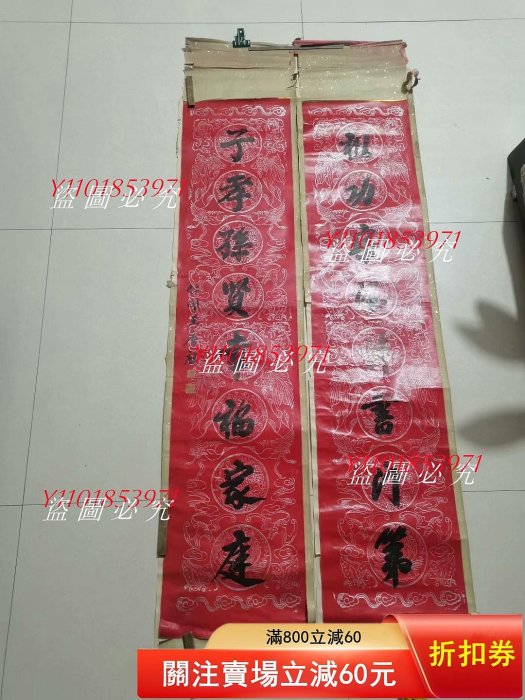 祖功宗德詩書门第
子孝孫贤幸福家庭
Y1101853971
盜圖必究
Y1101853971
盜圖必究
Y1101853971
盜圖必究
Y1101853971
盜圖必究
Y1101853971
盜圖必究
滿800立減60
關注賣場立減60元
折扣券